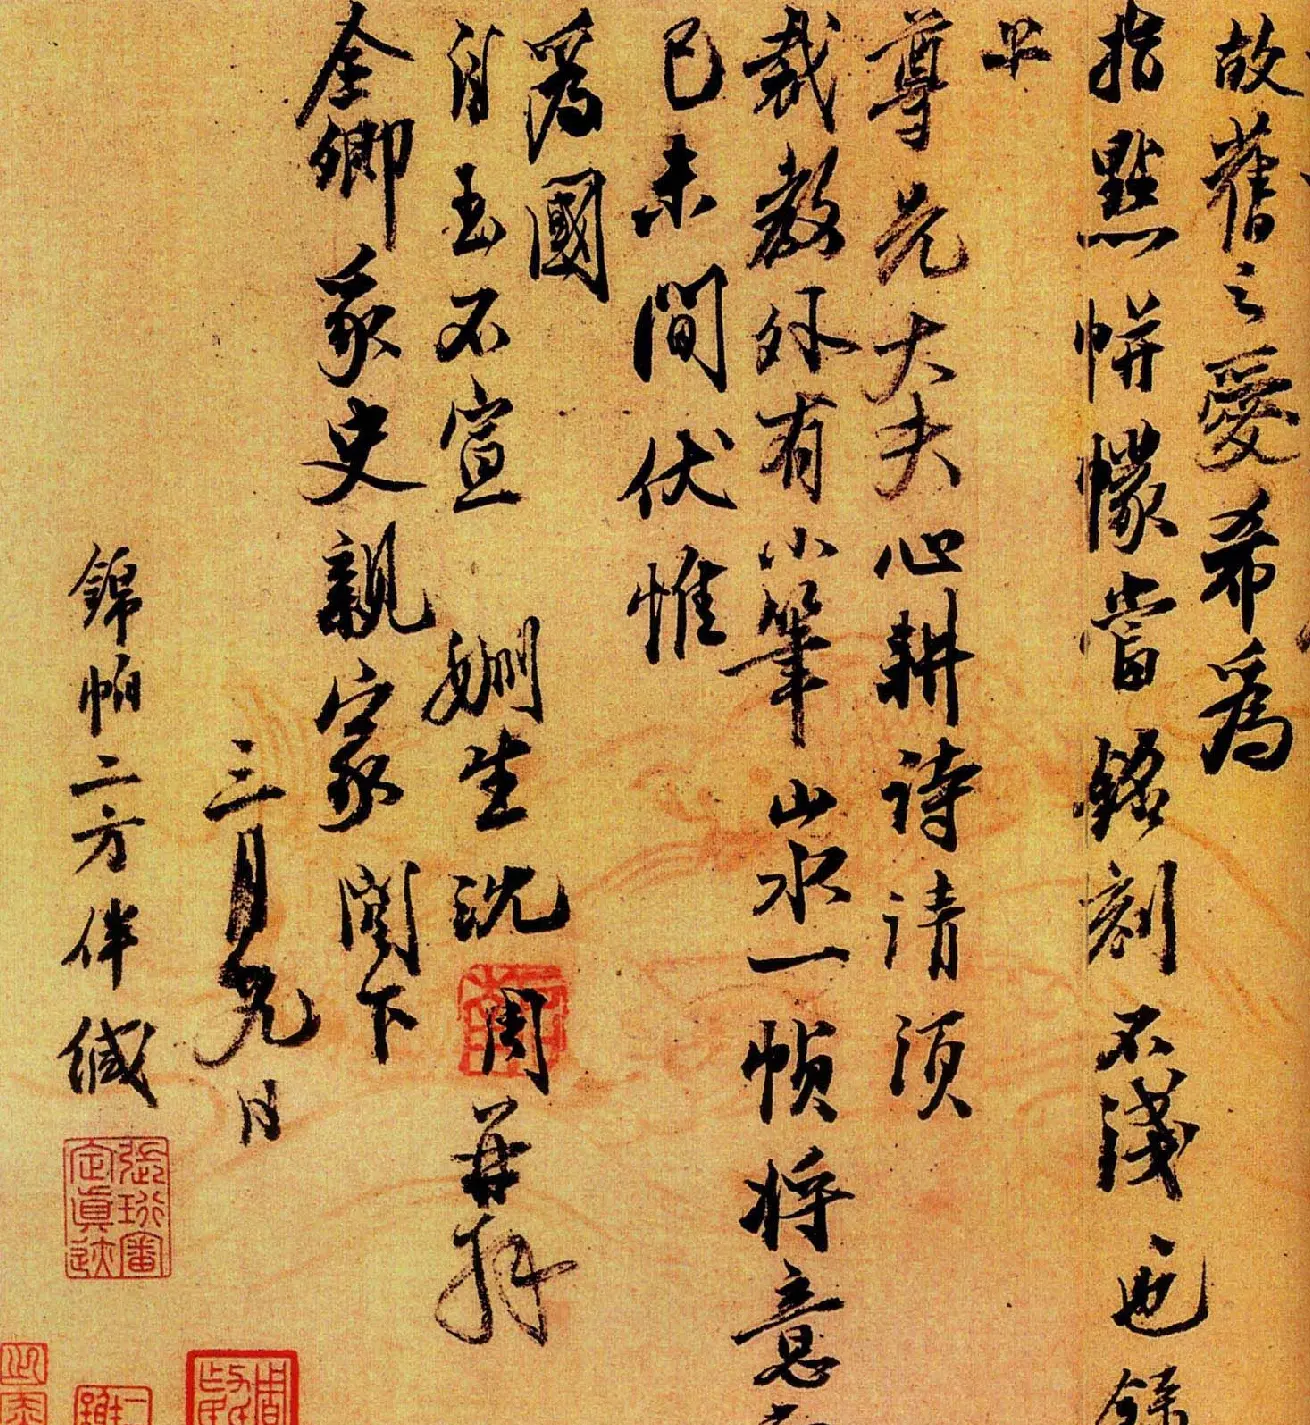 故舊之愛希爲
指點帡幪當銘刻不淺也餘
上
尊兄大夫心耕詩請須
裁教外有小筆山水一幀將意
已未間伏惟
爲國
自玉不宣 姻生沈周再拜
全卿冢史親家閣下
三月九日
錦帕二方伴緘
張珩審定真迹